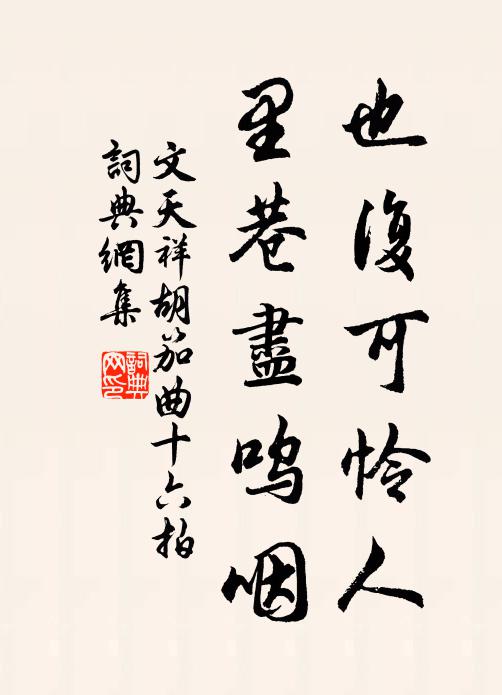 也復可憐人
里巷盡嗚咽
文天祥胡笳曲十六拍
詞典網集
詞典
网印